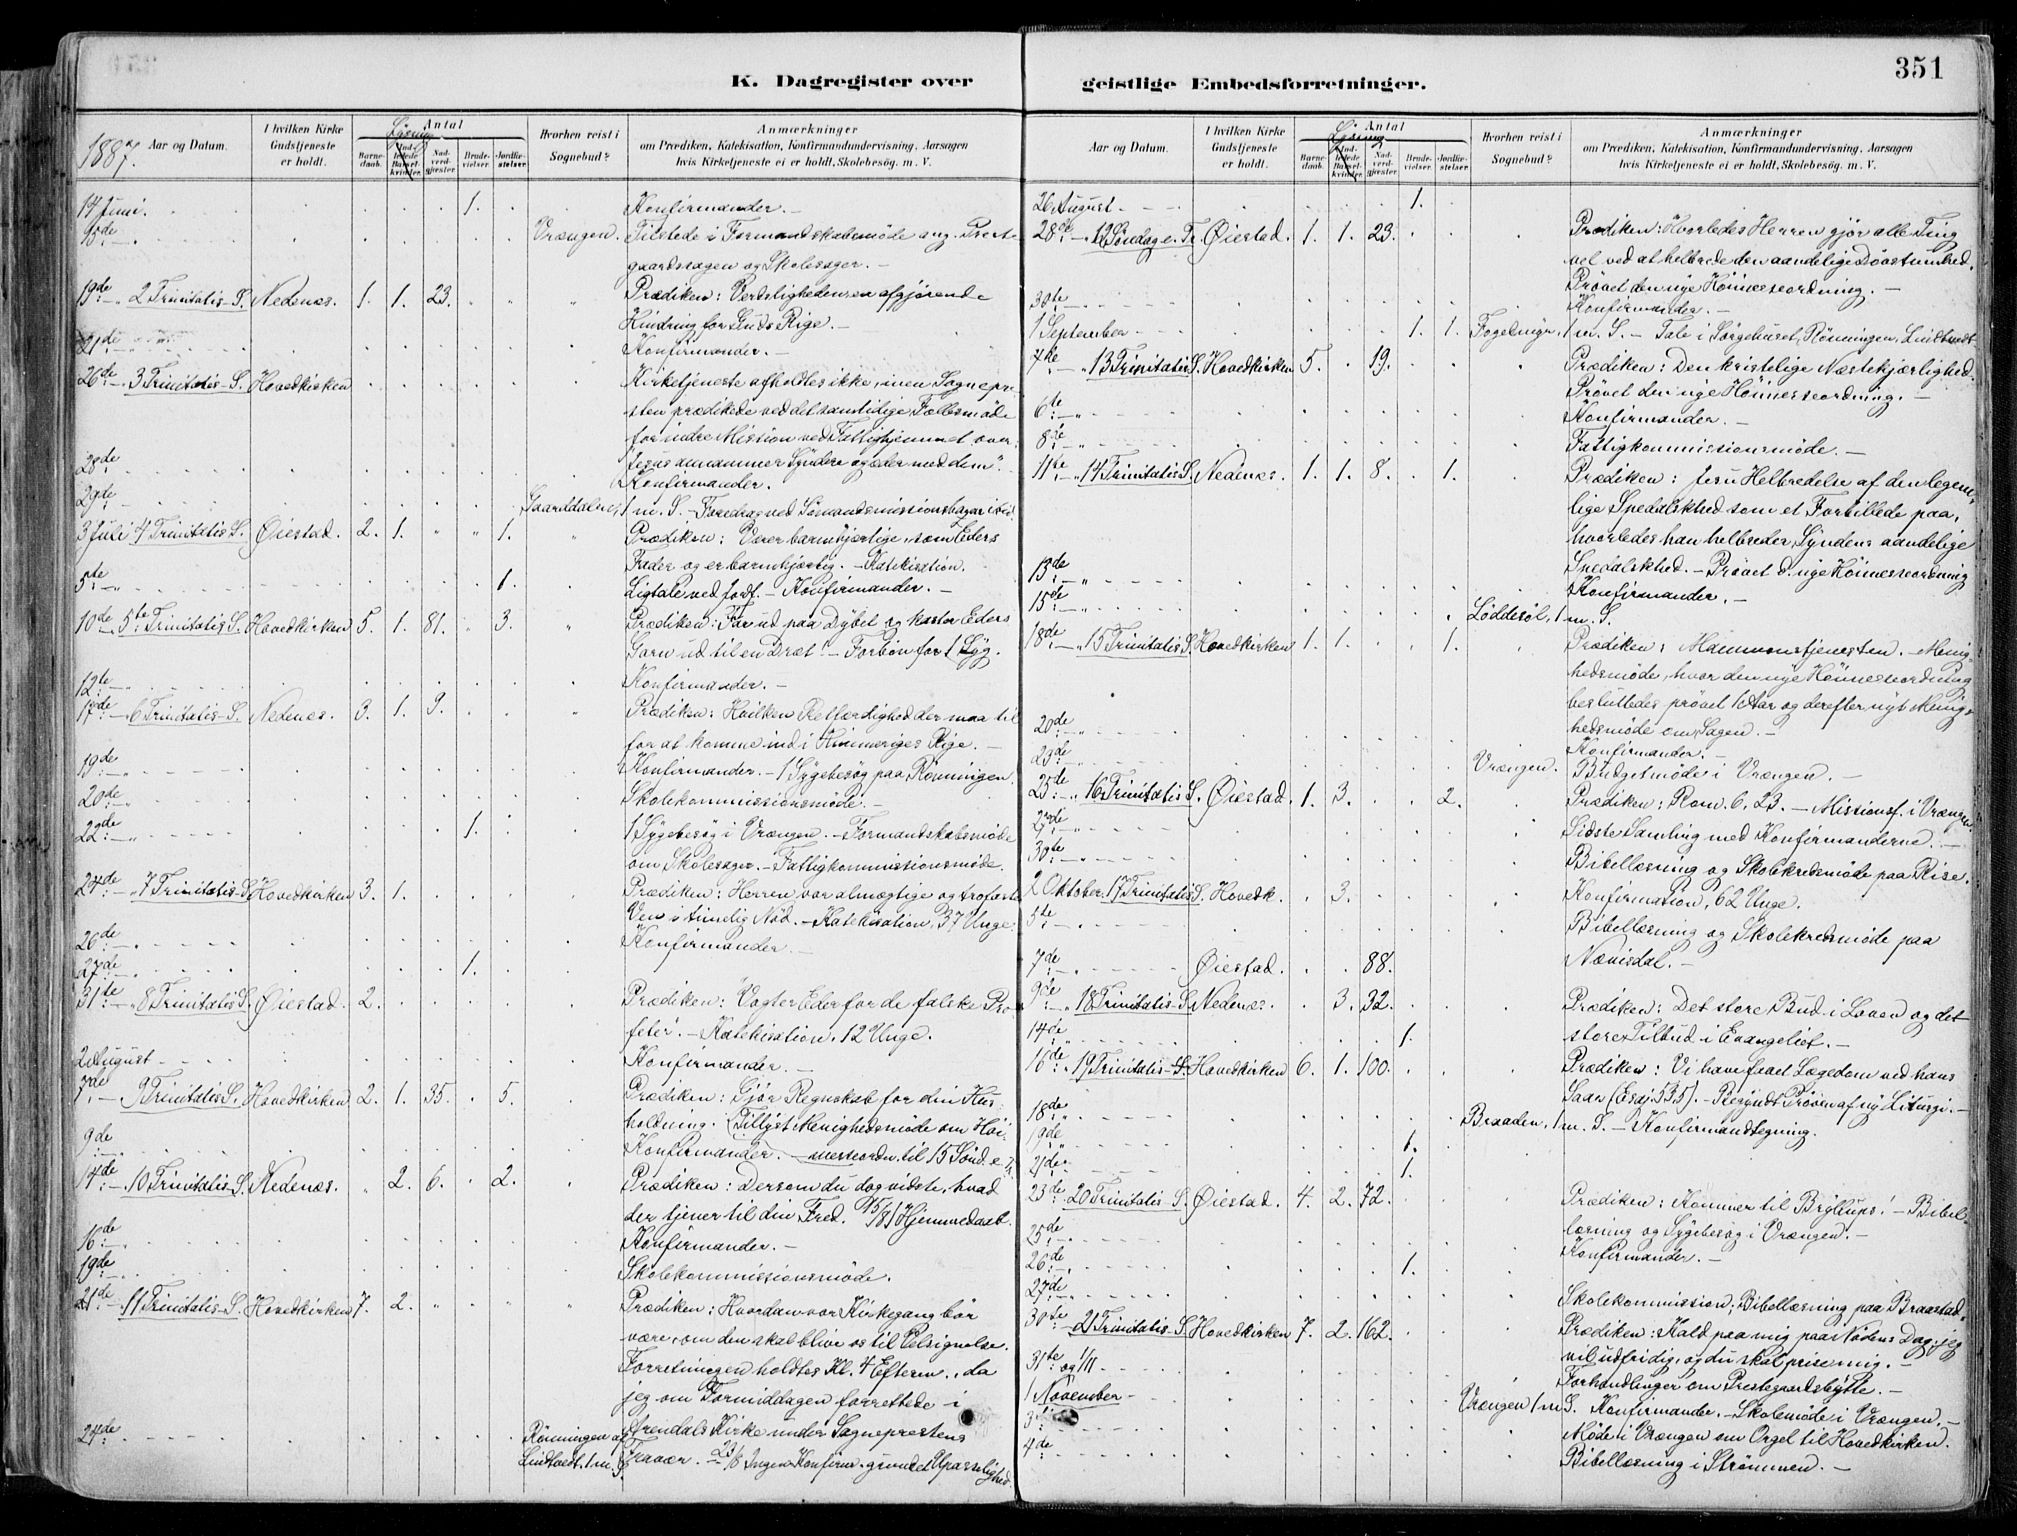 351
K. Dagregister over geistlige Embedsforretninger.
1887.
Aar og Datum. I hvilken Kirke Gudstjeneste er holdt. Antal Barnedaab. Indledede Barselkvinder. Lysning Nadverdgjæster. Brudevielser. Jordfæstelser. Hvorhen reist i Sognebud? Anmærkninger om Prædiken, Katekisation, Konfirmandundervisning, Aarsagen hvis Kirketjeneste ei er holdt, Skolebesög. m. V.
14 Juni. 1. Konfirmander. —
15de Vrængen. Tilstede i Formandskabsmöde ang. Præste-
gaardssagen og Skolesager. —
19de 2 Trinitatis S. Nedenæs. 1. 1. 23. Prædiken: Verdsligheden en afgjörende
Hindring for Guds Rige. —
21de Konfirmander. —
26de 3 Trinitatis S. Hovedkirken Kirketjeneste afholdtes ikke, men Sognepre-
sten prædikede ved det samtidige Fællesmöde
for indre Mission ved Fattighjemmet over
"Jesus anammer Syndere og æder med dem".
28de Konfirmander.
29de 1 m. S. — Foredrag ved Sömandsmissionsbazar
3 Juli 4 Trinitatis S. Øiestad. 2. 1. " " 1. Prædiken: Værer barmhjertige, som Eders
Fader og er barmhjertig. — Katekisation.
5te 1. Ligtale ved Jordf. — Konfirmander. —
10de 5te Trinitatis S. Hovedkirken 5. 1. 81. " 3. Prædiken: Far ud paa Dybet og kaster Eders
Garn ud til en Dræt! — Forbön for 1 Syg.
12te Konfirmander. —
17de 6 Trinitatis S. Nedenæs. 3. 1. 9. Prædiken: Hvilken Retfærdighed der maa til
for at komme ind i Himmeriges Rige. —
19de Konfirmander. — 1 Sygebesög paa Rönningen.
20de Skolekommissionsmöde. —
22de 1. 1 Sygebesög i Vrængen. — Formandskabsmöde
om Skolesager. — Fattigkommissionsmöde.
24de 7 Trinitatis S. Hovedkirken 3. 1. Prædiken: Herren vor almægtige og trofaste
Ven i timelig Nöd. — Katekisation, 37 Unge.
26de Konfirmander. —
27de 1.
31te 8 Trinitatis S. Øiestad. 2. Prædiken: Vogter Eder for de falske Pro-
feter. — Katekisation. 12 Unge.
2 August Konfirmander. —
7de 9 Trinitatis S. Hovedkirken 2. 1. 35. 5. Prædiken: Gjör Regnskab for din Hus-
holdning. (Tillyst Menighedsmöde om Höi-
9de Konfirmander. — messeordn. til 15 Sönd. e. Tr.
14de 10 Trinitatis S. Nedenæs. " 2. 6. 2. Prædiken: Dersom du dog vidste, hvad
der tjener til din Fred. 15/8) Hjemmedaab.
16de Konfirmander. —
19de Skolekommissionsmöde.
21de 11 Trinitatis S. Hovedkirken 7. 2. " " Prædiken: Hvordan vor Kirkegang bör
være, om den skal blive os til Velsignelse.
Forretningen holdtes Kl. 4 Efterm., da
jeg om Formiddagen forrettede i
Arendals Kirke under Sogneprestens
24de Rönningen af Lindtvedt. 1 m. S. Fravær. — 23/8 Ingen Konfirm. grundet Upasselighed.
Aar og Datum. I hvilken Kirke Gudstjeneste er holdt. Antal Barnedaab. Indledede Barselkvinder. Lysning Nadverdgjæster. Brudevielser. Jordfæstelser. Hvorhen reist i Sognebud? Anmærkninger om Prædiken, Katekisation, Konfirmandundervisning, Aarsagen hvis Kirketjeneste ei er holdt, Skolebesög. m. V.
26 August 1.
28de 12 Söndag e. Tr. Øiestad. 1. 1. 23. Prædiken: Hvorledes Herren gjör alle Ting
vel ved at helbrede den aandelige Dövstumhed.
Prövet den nye Höimesseordning. —
30te Konfirmander. —
1 September 1. 1. 1 m. S. — Tale i Sörgehuset, Rönningen, Lindtvedt.
4de 13 Trinitatis S. Hovedkirken 5. 19. Prædiken: Den kristelige Næstekjærlighed.
Prövet den nye Höimesseordning. —
6te Konfirmander.
8de Fattigkommissionsmöde. —
11te 14 Trinitatis S. Nedenæs. 1. 1. 8. 1. Prædiken: Jesu Helbredelse af den legem-
lige Spedalskhed som et Forbillede paa,
hvorledes han helbreder Syndens aandelige
Spedalskhed. — Prövet d. nye Höimesseordning
13de Konfirmander. —
15de Løddesöl, 1 m. S.
18de 15 Trinitatis S. Hovedkirken 1. 1. 1. Prædiken: Mammonstjenesten. — Menig-
hedsmöde, hvor den nye Höimesseordning
besluttedes prövet 1 Aar og derefter nyt Menig-
hedsmöde om Sagen. —
20de Konfirmander. —
23de Vrængen. Budgetmöde i Vrængen. —
25de 16 Trinitatis S. Øiestad. 1. 3. 2. Prædiken: Rom. 6, 23. — Missionsf. i Vrængen.
27de Sidste Samling med Konfirmanderne. —
30te Bibellæsning og Skolekredsmöde paa Rise.
2 Oktober. 17 Trinitatis S. Hovedk. 3. Konfirmation, 62 Unge.
5te Bibellæsning og Skolekredsmöde paa
Nævisdal. —
7de Øiestad. 88.
9de 18 Trinitatis S. Nedenæs. 3. 32. Prædiken: Det store Bud i Loven og det
store Tilbud i Evangeliet. —
14de 1.
16de 19 Trinitatis S. Hovedkirken 6. 1. 100. Prædiken: Vi have faaet Lægedom ved hans
Saar (Esaj 53 5). — Begyndt Pröven af ny Liturgi. —
18de Braaden, 1 m. S. — Konfirmandtegning.
19de 1.
21de 1.
23de 20 Trinitatis S. Øiestad. 4. 2. 72. Prædiken: Kommer til Bryllups! — Bibel-
læsning og Sygebesög i Vrængen. —
25de Konfirmander. —
26de 1.
27de Skolekommission; Bibellæsning paa Braastad.
30te 21 Trinitatis S. Hovedkirken 7. 2. 162. Prædiken: Kald paa mig paa Nödens Dag, jeg
vil udfri dig, og du skal prise mig. —
31te og 1/11 Forhandlinger om Prestegaardsbytte. —
1 November Vrængen 1 m. S. Konfirmander. — Skolemöde i Vrængen. —
3. Möde i Vrængen om Orgel til Hovedkirken.
4de Bibellæsning i Strömmen. —